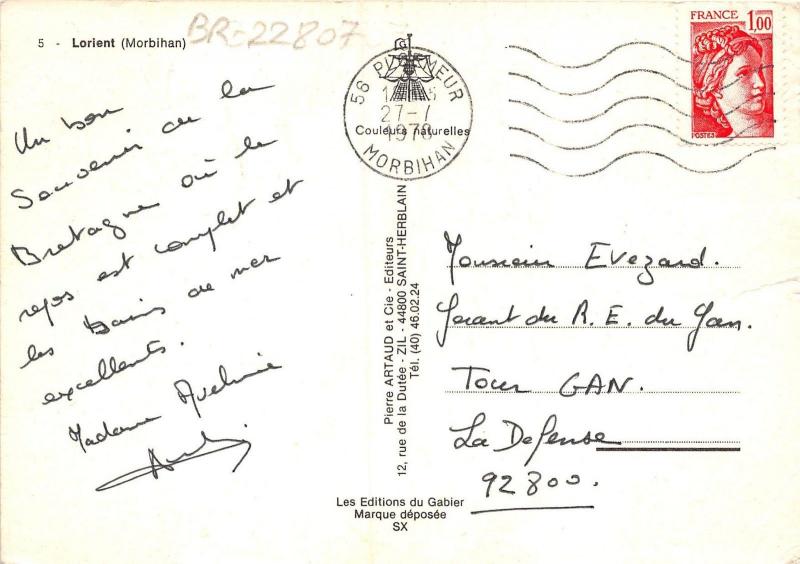 5 - Lorient (Morbihan)
BR-22807
Un bon
Souvenir de la
Bretagne où le
repos est complet et
les bains de mer
excellents.
Madame
56 PLOEMEUR
27-7
1978
MORBIHAN
Couleurs naturelles
FRANCE 1,00
POSTES
Pierre ARTAUD et Cie - Editeurs
12, rue de la Dutée - ZIL - 44800 SAINT-HERBLAIN
Tél. (40) 46.02.24
Monsieur Evezard.
Gerant du R. E. du Gan.
Tour GAN.
La Defense
92800.
Les Editions du Gabier
Marque déposée
SX